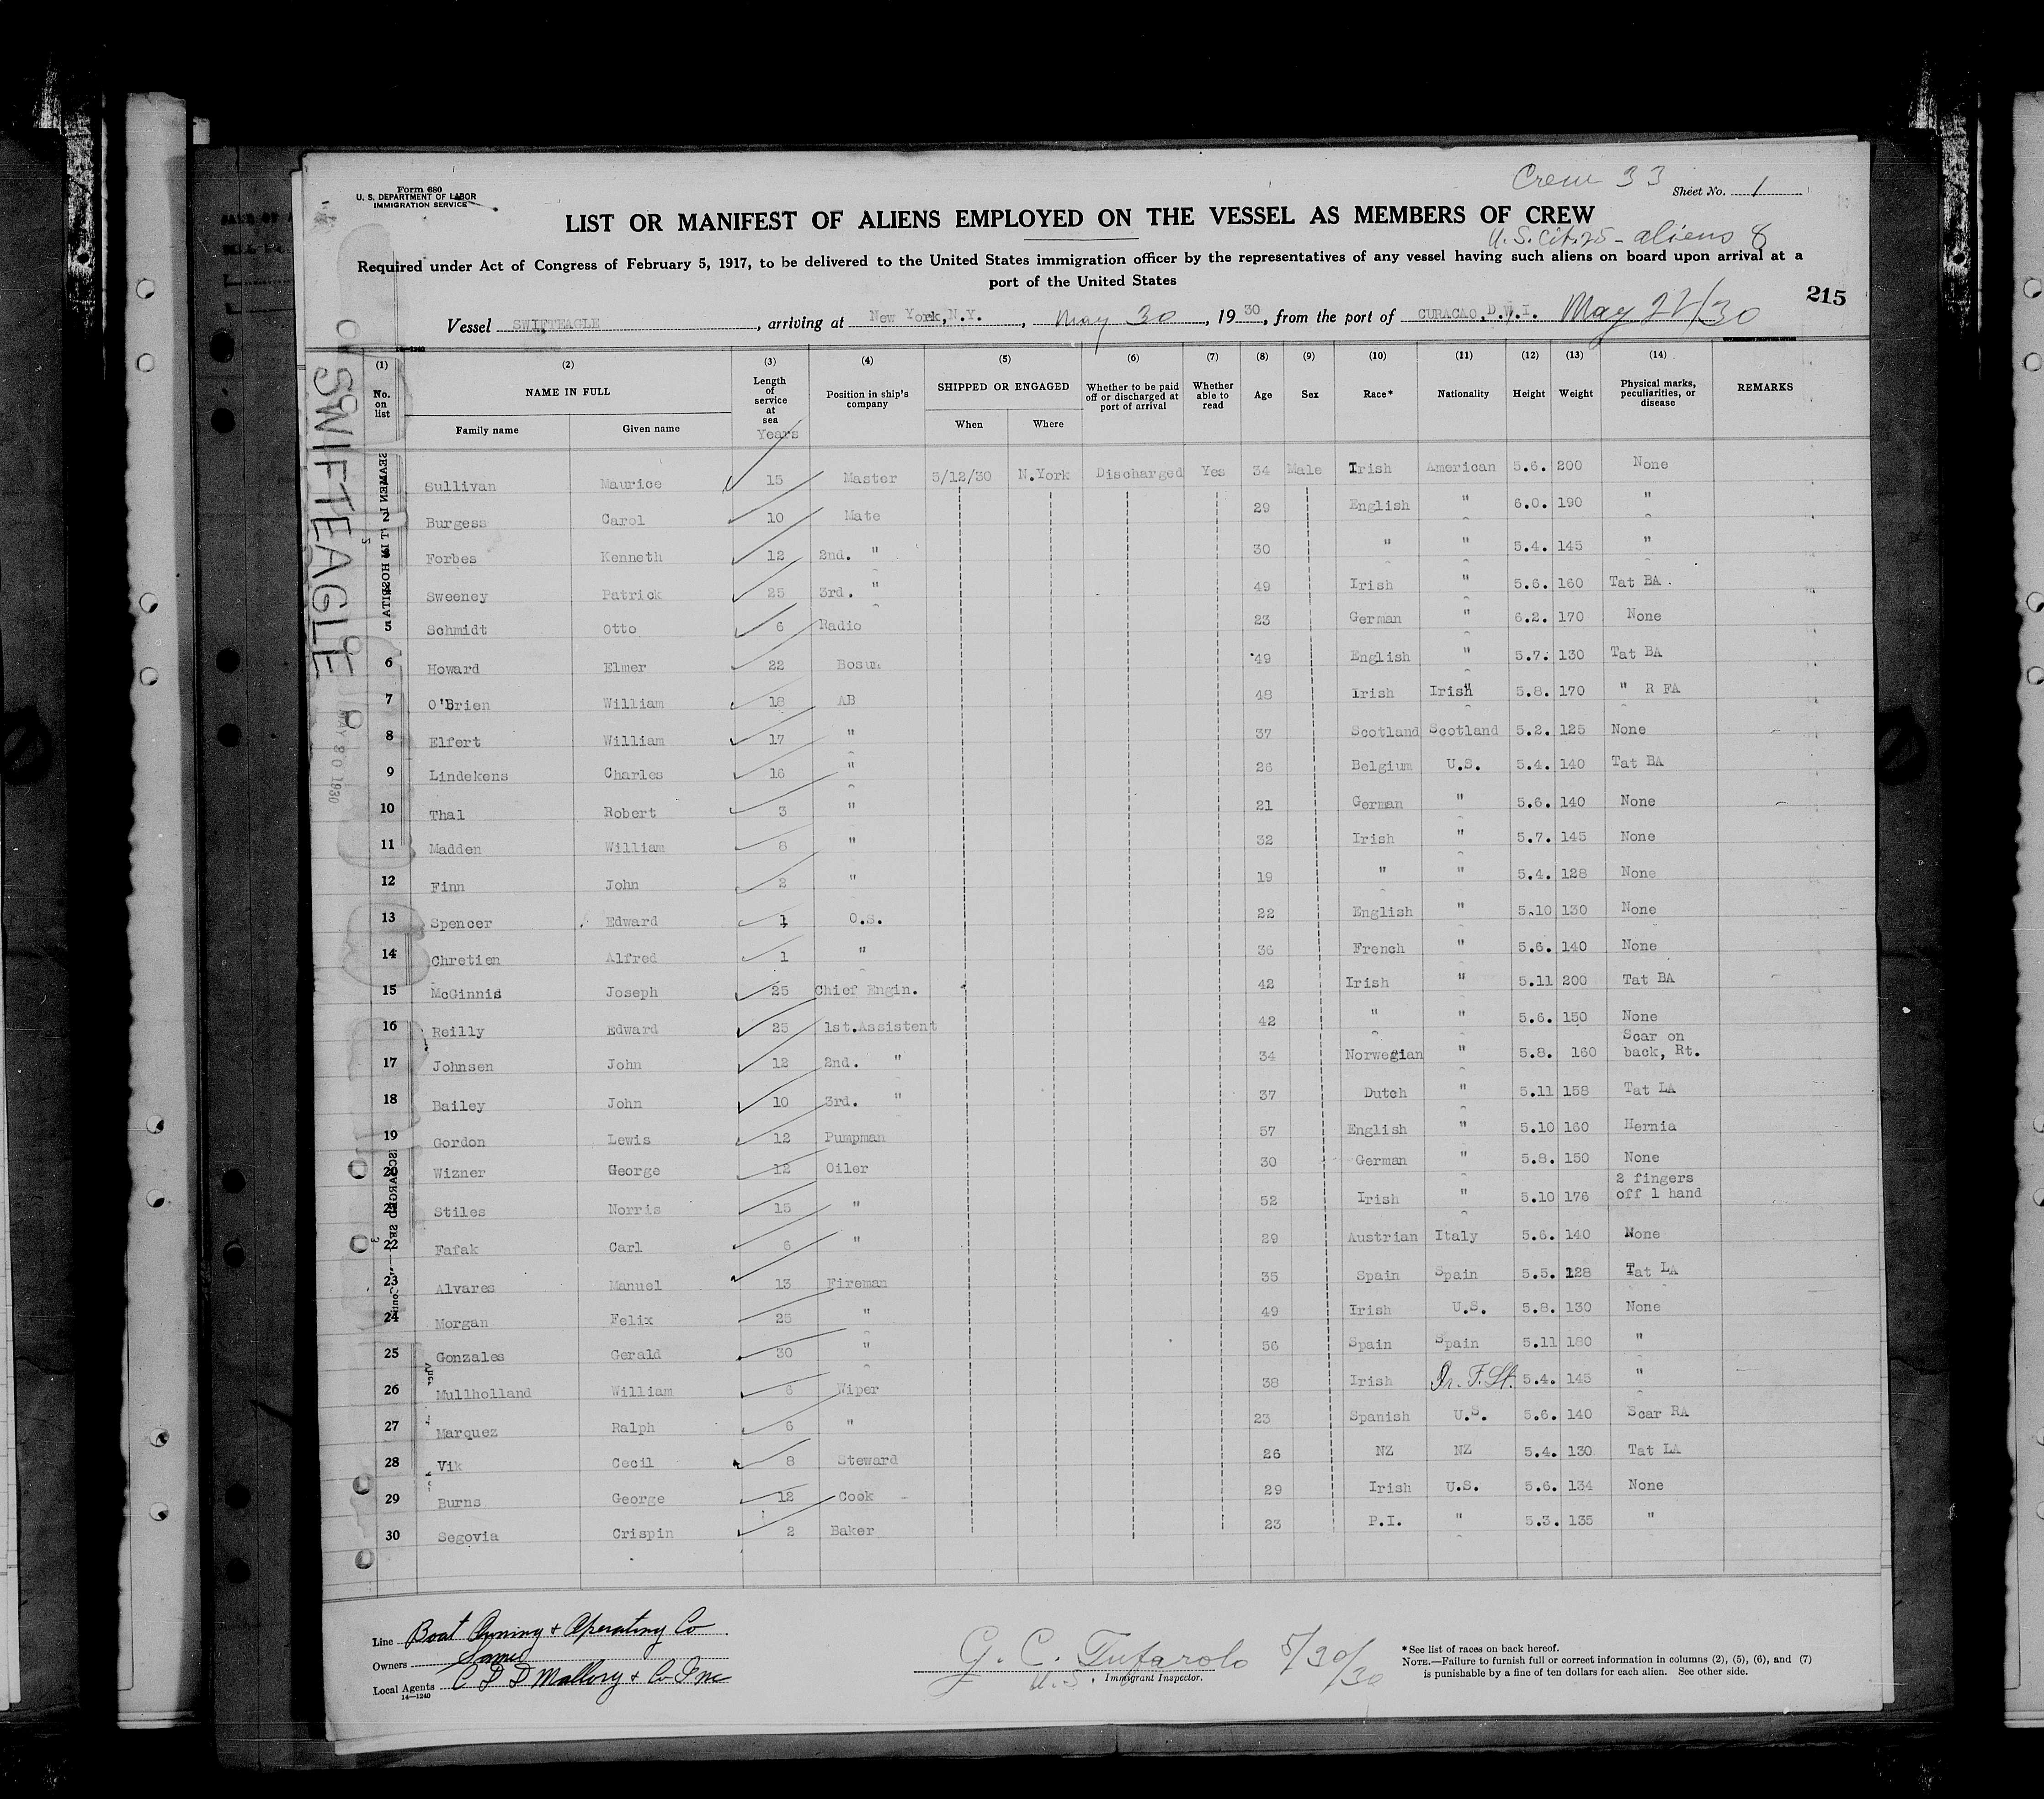 Form 680
U. S. DEPARTMENT OF LABOR
IMMIGRATION SERVICE
Crew 33
Sheet No. 1
LIST OR MANIFEST OF ALIENS EMPLOYED ON THE VESSEL AS MEMBERS OF CREW
U.S. Cit. 25 - aliens 8
Required under Act of Congress of February 5, 1917, to be delivered to the United States immigration officer by the representatives of any vessel having such aliens on board upon arrival at a
port of the United States
215
Vessel SWIFTEAGLE, arriving at New York, N.Y., May 30, 1930, from the port of CURACAO, D.W.I. May 22/30
14-1240
(1) (2) (3) (4) (5) (6) (7) (8) (9) (10) (11) (12) (13) (14)
No. on list NAME IN FULL Length of service at sea Position in ship's company SHIPPED OR ENGAGED Whether to be paid off or discharged at port of arrival Whether able to read Age Sex Race* Nationality Height Weight Physical marks, peculiarities, or disease REMARKS
Family name Given name Years When Where
Sullivan Maurice 15 Master 5/12/30 N.York Discharged Yes 34 Male Irish American 5.6. 200 None
2 Burgess Carol 10 Mate 29 English " 6.0. 190 "
Forbes Kenneth 12 2nd. " 30 " " 5.4. 145 "
Sweeney Patrick 25 3rd. " 49 Irish " 5.6. 160 Tat BA.
5 Schmidt Otto 6 Radio 23 German " 6.2. 170 None
6 Howard Elmer 22 Bosun 49 English " 5.7. 130 Tat BA
7 O'Brien William 18 AB 48 Irish Irish 5.8. 170 " R FA
8 Elfert William 17 " 37 Scotland Scotland 5.2. 125 None
9 Lindekens Charles 16 " 26 Belgium U.S. 5.4. 140 Tat BA
10 Thal Robert 3 " 21 German " 5.6. 140 None
11 Madden William 8 " 32 Irish " 5.7. 145 None
12 Finn John 2 " 19 " " 5.4. 128 None
13 Spencer Edward 1 O.S. 22 English " 5.10 130 None
14 Chretien Alfred 1 " 36 French " 5.6. 140 None
15 McGinnis Joseph 25 Chief Engin. 42 Irish " 5.11 200 Tat BA
16 Reilly Edward 25 1st.Assistent 42 " " 5.6. 150 None
17 Johnsen John 12 2nd. " 34 Norwegian " 5.8. 160 Scar on back, Rt.
18 Bailey John 10 3rd. " 37 Dutch " 5.11 158 Tat LA
19 Gordon Lewis 12 Pumpman 57 English " 5.10 160 Hernia
20 Wizner George 12 Oiler 30 German " 5.8. 150 None
21 Stiles Norris 15 " 52 Irish " 5.10 176 2 fingers off l hand
22 Fafak Carl 6 " 29 Austrian Italy 5.6. 140 None
23 Alvares Manuel 13 Fireman 35 Spain Spain 5.5. 128 Tat LA
24 Morgan Felix 25 " 49 Irish U.S. 5.8. 130 None
25 Gonzales Gerald 30 " 56 Spain Spain 5.11 180 "
26 Mullholland William 6 Wiper 38 Irish Ir. F. St. 5.4. 145 "
27 Marquez Ralph 6 " 23 Spanish U.S. 5.6. 140 Scar RA
28 Vik Cecil 8 Steward 26 NZ NZ 5.4. 130 Tat LA
29 Burns George 12 Cook 29 Irish U.S. 5.6. 134 None
30 Segovia Crispin 2 Baker 23 P.I. " 5.3. 135 "
SWIFTEAGLE
MAY 30 1930
Line Boat Owning & Operating Co
Owners Same
Local Agents C D Mallory & Co Inc
14-1240
G. C. Tufarolo 5/30/30
U.S. Immigrant Inspector.
*See list of races on back hereof.
NOTE.—Failure to furnish full or correct information in columns (2), (5), (6), and (7)
is punishable by a fine of ten dollars for each alien. See other side.